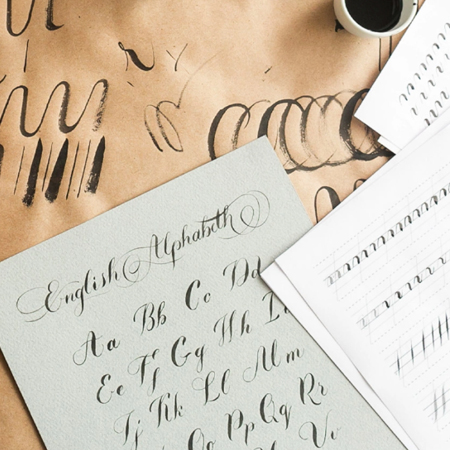 English Alphabeth
Aa Bb Cc Dd
Ee Ff Gg Hh I
Jj Kk Ll Mm
Oo Pp Qq Rr
Vv